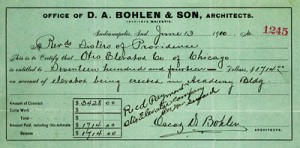 OFFICE OF D. A. BOHLEN & SON, ARCHITECTS.
1245
Indianapolis, Ind. June 13 190
To Sisters of Providence
This is to Certify that Otis Elevator Co of Chicago
is Entitled to hundred and fourteen Dollars, $1714.00
on account of elevator being erected in Academy Bldg
Amount of Contract $3428.00
Rec'd Payment
Otis Elevator Company
Amount Paid, including this estimate 1714.00
$1714.00
Oscar D. Bohlen